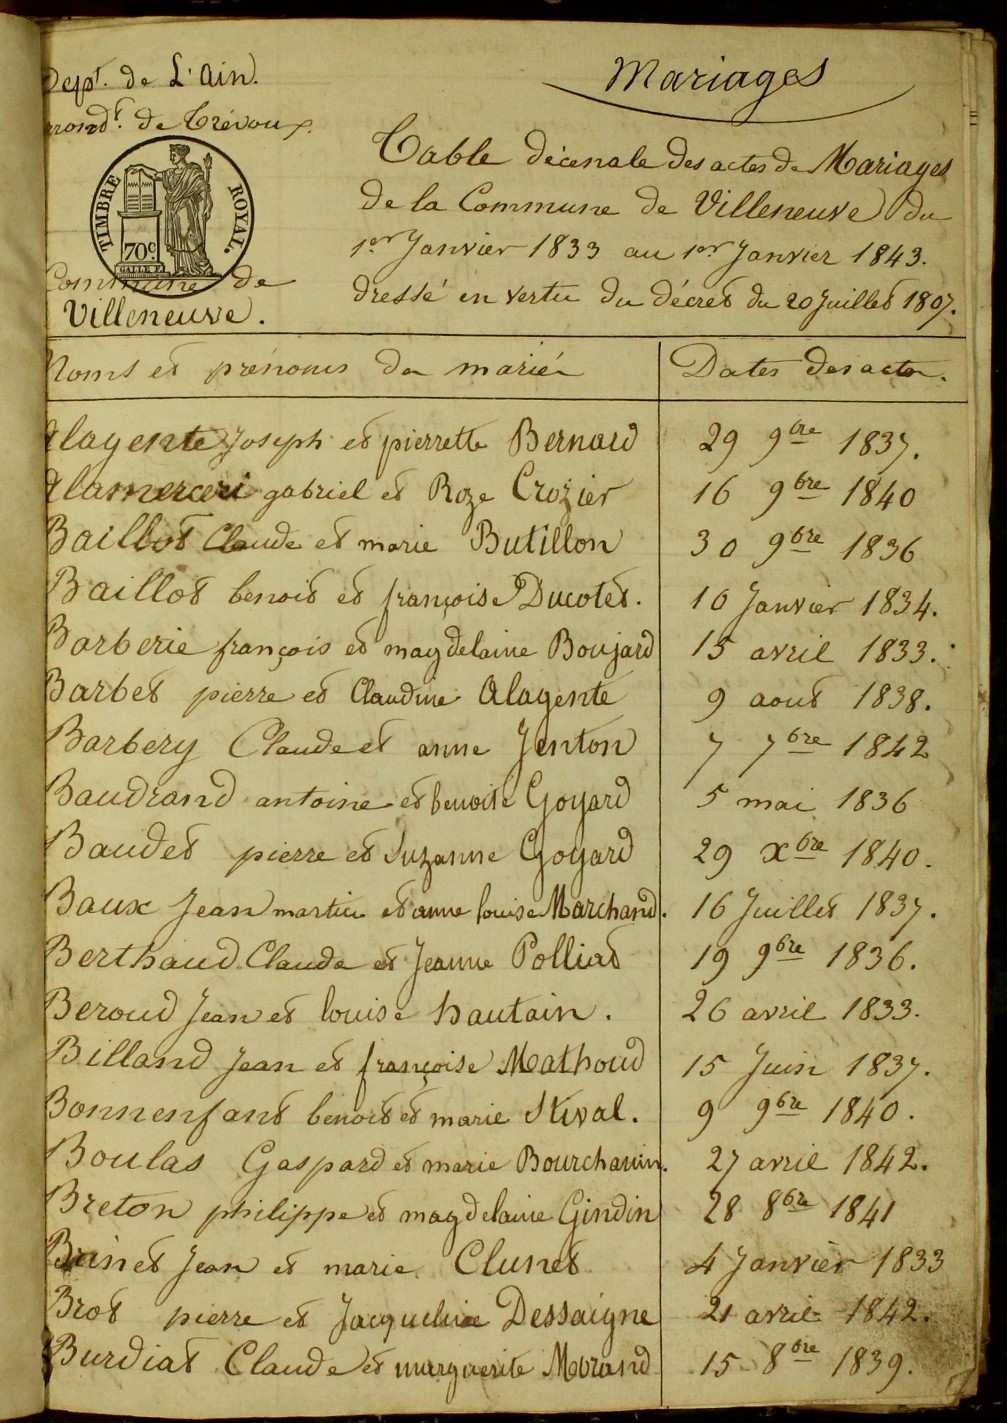 Dept. de L'Ain.
arrondt. de Trévoux.
TIMBRE ROYAL.
70c.
Commune de
Villeneuve.
Mariages
Table décenale des actes de Mariages
de la Commune de Villeneuve du
1er Janvier 1833 au 1er Janvier 1843.
dressé en vertu du décret du 20 Juillet 1807.
Noms et prénoms des mariés
Dates des actes.
Alagente Joseph et pierrette Bernard 29 9bre 1837.
Alamerceri gabriel et Roze Crozier 16 9bre 1840
Baillot Claude et marie Butillon 30 9bre 1836
Baillot benoit et françoise Ducotet. 10 Janvier 1834.
Barberie françois et magdelaine Boujard 15 avril 1833.
Barbet pierre et Claudine Alagente 9 aout 1838.
Barbery Claude et anne Jenton 7 7bre 1842
Baudrand antoine et benoite Goyard 5 mai 1836
Baudet pierre et Suzanne Goyard 29 xbre 1840.
Baux Jean martin et anne louise Marchand. 16 Juillet 1837.
Berthaud Claude et Jeanne Polliat 19 9bre 1836.
Beroud Jean et louise hautain. 26 avril 1833.
Billand Jean et françoise Mathoud 15 Juin 1837.
Bonnenfant benoit et marie Stival. 9 9bre 1840.
Boulas Gaspard et marie Bourchanin. 27 avril 1842.
Breton philippe et magdelaine Gindin 28 8bre 1841
Brinet Jean et marie Clunet 4 Janvier 1833
Brot pierre et Jacqueline Dessaigne 21 avril 1842.
Burdiat Claude et marguerite Morand 15 8bre 1839.